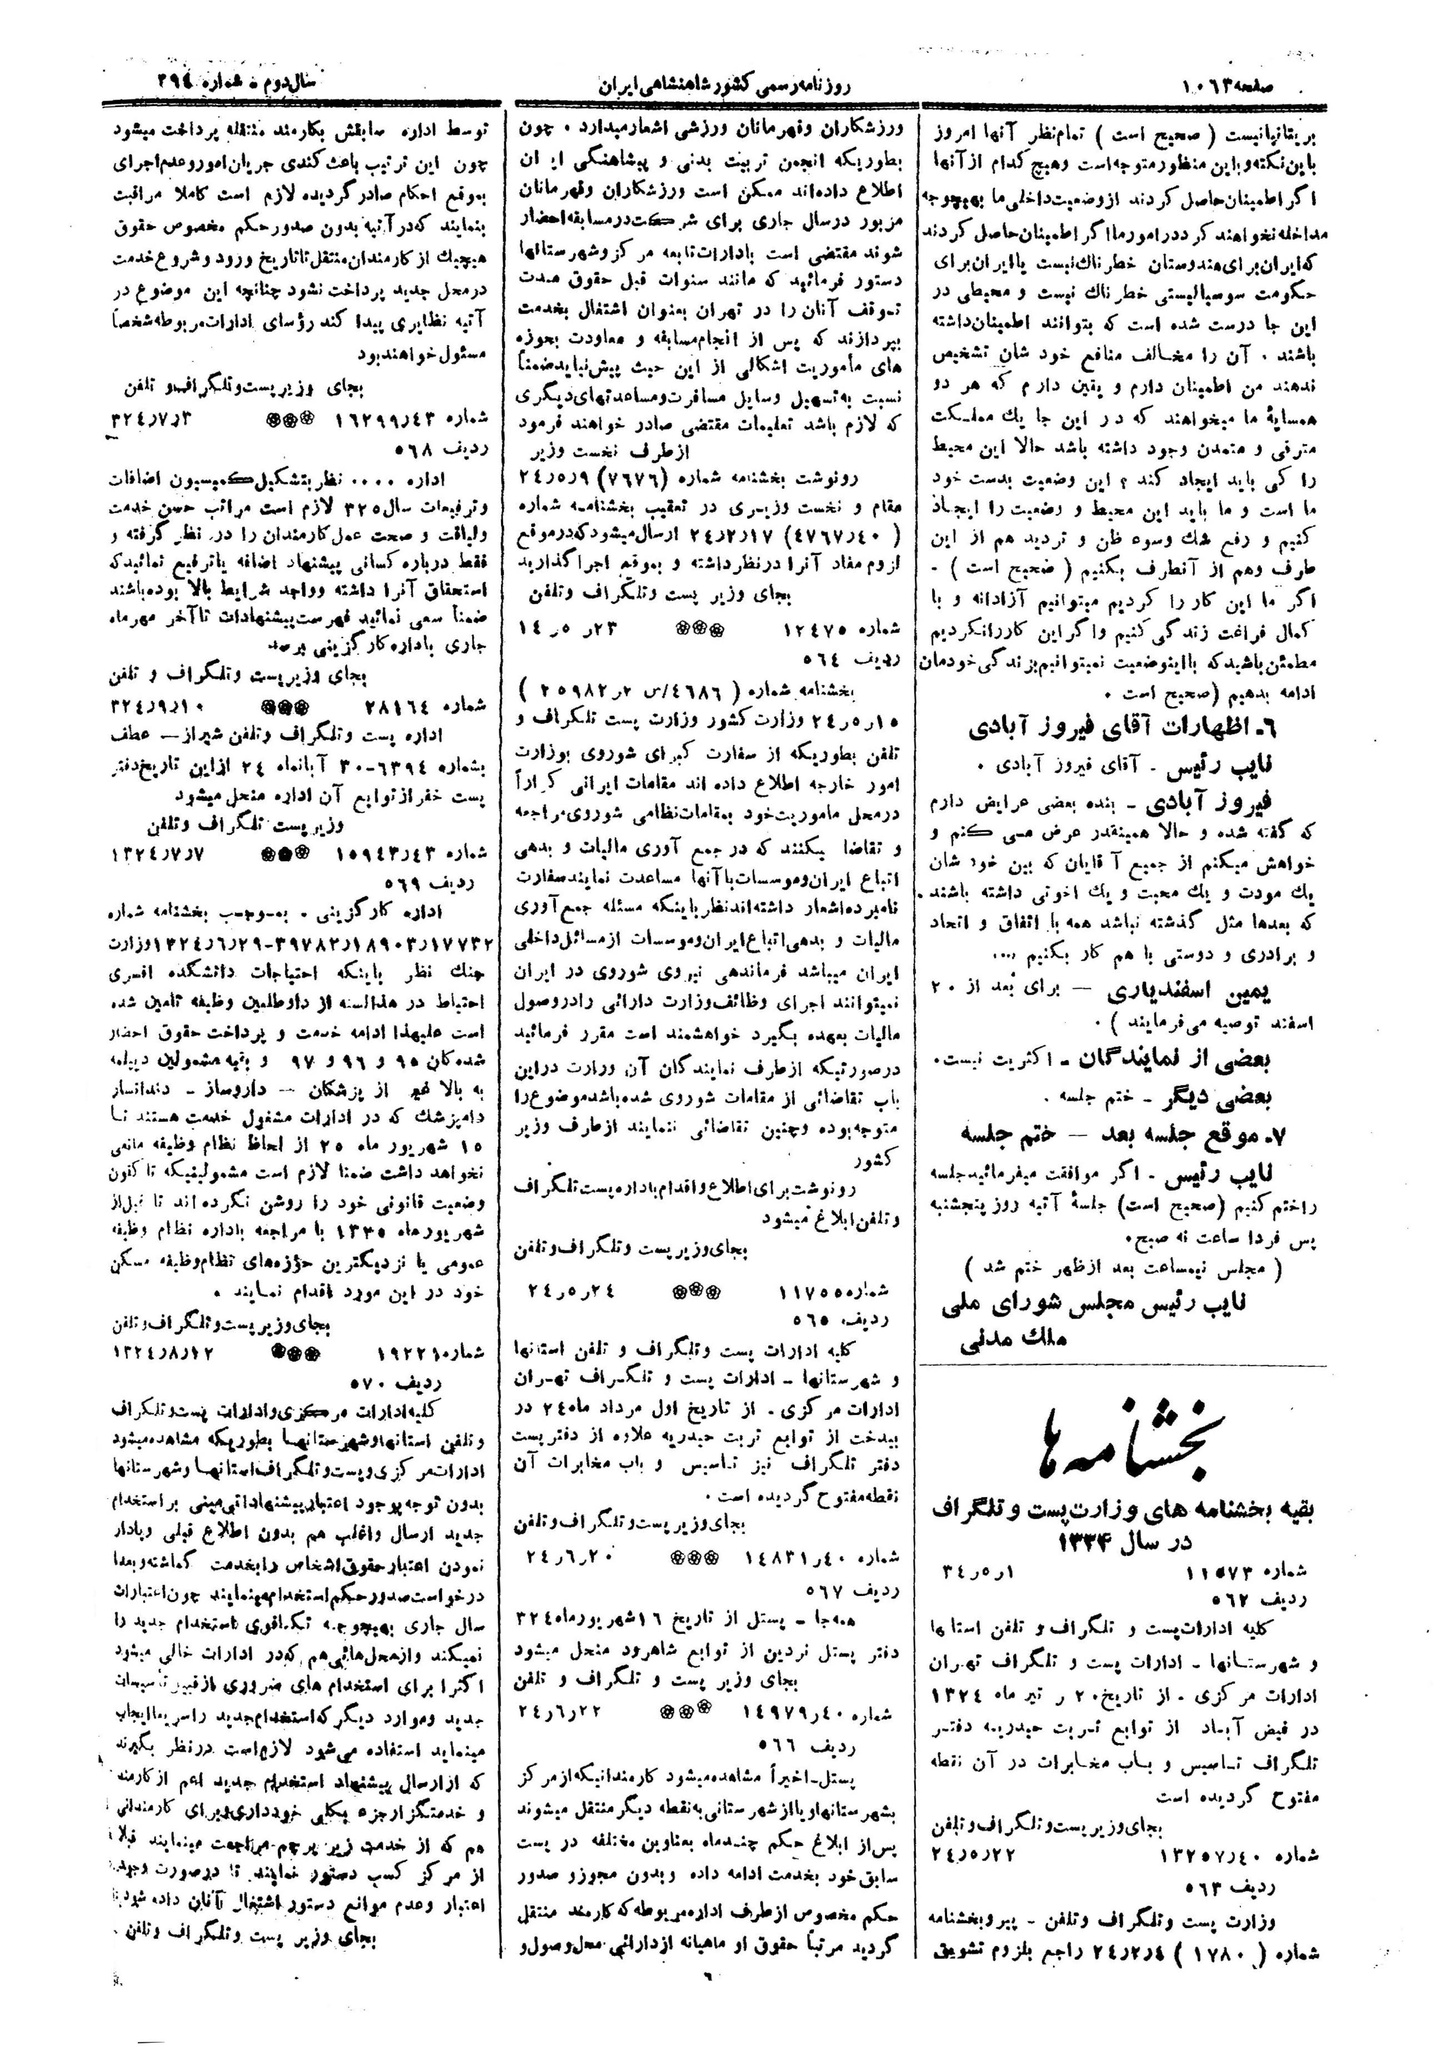 صفحه ۱۰۶۳
روزنامه رسمی کشور شاهنشاهی ایران
سال دوم - شماره ۲۹٤
بریتانیانیست ( صحیح است ) تمام نظر آنها امروز
باین نکته و باین منظور متوجه است وهیچ کدام از آنها
اگر اطمینان حاصل کردند از وضعیت داخلی ما بهیچوجه
مداخله نخواهند کرد در امور ما اگر اطمینان حاصل کردند
که ایران برای هندوستان خطرناك نیست یا ایران برای
حکومت سوسیالیستی خطرناك نیست و محیطی در
این جا درست شده است که بتوانند اطمینان داشته
باشند . آن را مخالف منافع خود شان تشخیص
ندهند من اطمینان دارم و یقین دارم که هر دو
همسایهٔ ما میخواهند که در این جا یك مملکت
مترقی و متمدن وجود داشته باشد حالا این محیط
را کی باید ایجاد کند ؟ این وضعیت بدست خود
ما است و ما باید این محیط و وضعیت را ایجاد
کنیم و رفع شك وسوء ظن و تردید هم از این
طرف وهم از آنطرف بکنیم ( صحیح است ) -
اگر ما این کار را کردیم میتوانیم آزادانه و با
کمال فراغت زندگی کنیم واگر این کار رانکردیم
مطمئن باشید که با اینوضعیت نمیتوانیم بزندگی خودمان
ادامه بدهیم (صحیح است .
٦- اظهارات آقای فیروز آبادی
نایب رئیس - آقای فیروز آبادی .
فیروز آبادی - بنده بعضی عرایض دارم
که گفته شده و حالا همینقدر عرض می کنم و
خواهش میکنم از جمیع آقایان که بین خود شان
یك مودت و یك محبت و یك اخوتی داشته باشند .
که بعدها مثل گذشته نباشد همه با اتفاق و اتحاد
و برادری و دوستی با هم کار بکنیم ....
یمین اسفندیاری — برای بعد از ۲۰
اسفند توصیه می‌فرمایند ) .
بعضی از نمایندگان - اکثریت نیست .
بعضی دیگر - ختم جلسه .
۷- موقع جلسه بعد — ختم جلسه
نایب رئیس - اگر موافقت میفرمائید جلسه
راختم کنیم (صحیح است) جلسهٔ آتیه روز پنجشنبه
پس فردا ساعت نه صبح .
( مجلس نیمساعت بعد از ظهر ختم شد )
نایب رئیس مجلس شورای ملی
ملك مدنی
بخشنامه‌ها
بقیه بخشنامه های وزارت پست و تلگراف
در سال ۱۳۲۴
شماره ۱۱۵۷۳ ۱ر۵ر۳٤
ردیف ۵٦۲
کلیه ادارات پست و تلگراف و تلفن استانها
و شهرستانها - ادارات پست و تلگراف تهران
ادارات مرکزی - از تاریخ ۲۰ ر تیر ماه ۱۳۲٤
در فیض آباد از توابع تربت حیدریه دفتر
تلگراف تاسیس و باب مخابرات در آن نقطه
مفتوح گردیده است
بجای وزیر پست و تلگراف و تلفن
شماره ۱۳۲۵۷ر٤۰ ۲٤ر۵ر۲۲
ردیف ۵٦۳
وزارت پست و تلگراف و تلفن - پیرو بخشنامه
شماره ( ۱۷۸۰ ) ۲٤ر۲ر٤ راجع بلزوم تشویق
ورزشکاران و قهرمانان ورزشی اشعار میدارد . چون
بطوریکه انجمن تربیت بدنی و پیشاهنگی ایران
اطلاع داده‌اند ممکن است ورزشکاران وقهرمانان
مزبور درسال جاری برای شرکت در مسابقه احضار
شوند مقتضی است بادارات تابعه مرکز و شهرستانها
دستور فرمائید که مانند سنوات قبل حقوق مدت
توقف آنان را در تهران بعنوان اشتغال بخدمت
بپردازند که پس از انجام مسابقه و معاودت بحوزه
های مأموریت اشکالی از این حیث پیش نیاید ضمناً
نسبت به تسهیل وسایل مسافرت و مساعدتهای دیگری
که لازم باشد تعلیمات مقتضی صادر خواهند فرمود
از طرف نخست وزیر
رونوشت بخشنامه شماره (۷٦۷٦) ۲٤ر۵ر۹
مقام و نخست وزیری در تعقیب بخشنامه شماره
( ٤۷٦۷ر٤۰) ۲٤ر۲ر۱۷ ارسال میشود که در موقع
لزوم مفاد آنرا در نظر داشته و بموقع اجرا گذارید
بجای وزیر پست و تلگراف و تلفن
شماره ۱۲٤۷۵ ۱٤ر۵ر۲۳
ردیف ۵٦٤
بخشنامه شماره ( ٤٦۸٦/س ۲ر۲۵۹۸۲ )
۲٤ر۵ر۱۵ وزارت کشور وزارت پست تلگراف و
تلفن بطوریکه از سفارت کبرای شوروی بوزارت
امور خارجه اطلاع داده اند مقامات ایرانی کراراً
در محل ماموریت خود بمقامات نظامی شوروی مراجعه
و تقاضا میکنند که در جمع آوری مالیات و بدهی
اتباع ایران و موسسات با آنها مساعدت نمایند سفارت
نامبرده اشعار داشته‌اند نظر باینکه مسئله جمع آوری
مالیات و بدهی اتباع ایران و موسسات از مسائل داخلی
ایران میباشد فرماندهی نیروی شوروی در ایران
نمیتوانند اجرای وظائف وزارت دارائی رادر وصول
مالیات بعهده بگیرد خواهشمند است مقرر فرمائید
در صورتیکه از طرف نمایندگان آن وزارت در این
باب تقاضائی از مقامات شوروی شده باشد موضوع را
متوجه بوده و چنین تقاضائی ننمایند از طرف وزیر
کشور
رونوشت برای اطلاع و اقدام باداره پست تلگراف
و تلفن ابلاغ میشود
بجای وزیر پست و تلگراف و تلفن
شماره ۱۱۷۵۵ ۲٤ر۵ر۲٤
ردیف ۵٦۵
کلیه ادارات پست و تلگراف و تلفن استانها
و شهرستانها - ادارات پست و تلگراف تهران
ادارات مرکزی - از تاریخ اول مرداد ماه ۲٤ در
بیدخت از توابع تربت حیدریه علاوه از دفتر پست
دفتر تلگراف نیز تاسیس و باب مخابرات آن
نقطه مفتوح گردیده است .
بجای وزیر پست و تلگراف و تلفن
شماره ۱٤۸۳۱ر٤۰ ۲٤ر٦ر۲۰
ردیف ۵٦۷
همه جا - پستل از تاریخ ۱٦ شهریور ماه ۳۲٤
دفتر پستل نردین از توابع شاهرود منحل میشود
بجای وزیر پست و تلگراف و تلفن
شماره ۱٤۹۷۹ر٤۰ ۲٤ر٦ر۲۲
ردیف ۵٦٦
پستل - اخیراً مشاهده میشود کارمندانیکه از مرکز
بشهرستانها و یا از شهرستانی به نقطه دیگر منتقل میشوند
پس از ابلاغ حکم چند ماه بعناوین مختلفه در پست
سابق خود بخدمت ادامه داده و بدون مجوز و صدور
حکم مخصوص از طرف اداره مربوطه که کارمند منتقل
گردید مرتباً حقوق او ماهیانه از دارائی محل وصول و
توسط اداره سابقش بکارمند منتقله پرداخت میشود
چون این ترتیب باعث کندی جریان امور و عدم اجرای
بموقع احکام صادر گردیده لازم است کاملا مراقبت
بنمایند که در آتیه بدون صدور حکم مخصوص حقوق
هیچیك از کارمندان منتقل تا تاریخ ورود و شروع خدمت
در محل جدید پرداخت نشود چنانچه این موضوع در
آتیه نظایری پیدا کند رؤسای ادارات مربوطه شخصاً
مسئول خواهند بود
بجای وزیر پست و تلگراف و تلفن
شماره ۱٦۲۹۹ر٤۳ ۳۲٤ر۷ر۳
ردیف ۵٦۸
اداره .... نظر بتشکیل کمیسیون اضافات
و ترفیعات سال ۳۲۵ لازم است مراتب حسن خدمت
ولیاقت و صحت عمل کارمندان را در نظر گرفته و
فقط درباره کسانی پیشنهاد اضافه یا ترفیع نمائید که
استحقاق آنرا داشته و واجد شرایط بالا بوده باشند
ضمناً سعی نمائید فهرست پیشنهادات تا آخر مهر ماه
جاری باداره کارگزینی برسد
بجای وزیر پست و تلگراف و تلفن
شماره ۲۸۱٦٤ ۳۲٤ر۹ر۱۰
اداره پست و تلگراف و تلفن شیراز — عطف
بشماره ٦۳۹٤-۳۰ آبانماه ۲٤ از این تاریخ دفتر
پست خفر از توابع آن اداره منحل میشود
وزیر پست تلگراف و تلفن
شماره ۱۵۹٤۳ر٤۳ ۱۳۲٤ر۷ر۷
ردیف ۵٦۹
اداره کارگزینی . بموجب بخشنامه شماره
۱۷۷۳۲ر۱۸۹۰۳ر۳۹۷۸۲-۱۳۲٤ر٦ر۲۹ وزارت
جنك نظر باینکه احتیاجات دانشکده افسری
احتیاط در هذالسنه از داوطلبین وظیفه تامین شده
است علیهذا ادامه خدمت و پرداخت حقوق احضار
شده‌کان ۹۵ و ۹٦ و ۹۷ و بقیه مشمولین دیپلمه
به بالا غیر از پزشکان — داروساز - دندانساز
دامپزشك که در ادارات مشغول خدمت هستند تا
۱۵ شهریور ماه ۲۵ از لحاظ نظام وظیفه مانعی
نخواهد داشت ضمنا لازم است مشمولینیکه تا کنون
وضعیت قانونی خود را روشن نکرده اند تا قبل از
شهریور ماه ۱۳۲۵ با مراجعه باداره نظام وظیفه
عمومی یا نزدیکترین حوزه‌های نظام وظیفه مسکن
خود در این مورد اقدام نمایند .
بجای وزیر پست و تلگراف و تلفن
شماره ۱۹۲۲۱ ۱۳۲٤ر۸ر۱۲
ردیف ۵۷۰
کلیه ادارات مرکزی و ادارات پست و تلگراف
و تلفن استانها و شهرستانها بطوریکه مشاهده میشود
ادارات مرکزی و پست و تلگراف استانها و شهرستانها
بدون توجه بوجود اعتبار پیشنهاداتی مبنی بر استخدام
جدید ارسال واغلب هم بدون اطلاع قبلی و یا دار
نمودن اعتبار حقوق اشخاص را بخدمت گماشته و بعدا
درخواست صدور حکم استخدام مینمایند چون اعتبارات
سال جاری بهیچوجه تکافوی استخدام جدید را
نمیکند و از محل هائی هم که در ادارات خالی میشود
اکثرا برای استخدام های ضروری از قبیل تاسیسات
جدید و موارد دیگر که استخدام جدید را سریعا ایجاب
مینماید استفاده می شود لازم است در نظر بگیرند
که از ارسال پیشنهاد استخدام جدید اعم از کارمند
و خدمتگزار جزء بکلی خودداری و برای کارمندانی
هم که از خدمت زیر پرچم مراجعت مینمایند قبلا
از مرکز کسب دستور نمایند تا در صورت وجود
اعتبار وعدم موانع دستور اشتغال آنان داده شود
بجای وزیر پست و تلگراف و تلفن .
٦